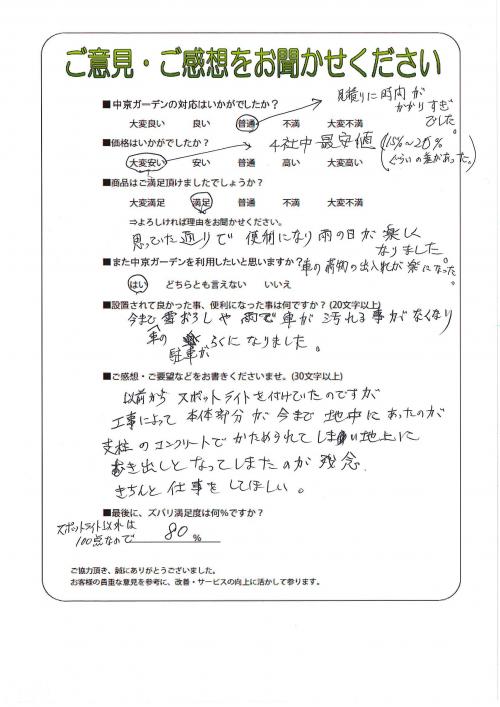 ご意見・ご感想をお聞かせください
■中京ガーデンの対応はいかがでしたか？
見積りに時間が
かかりすぎ
でした。
大変良い　良い　普通　不満　大変不満
■価格はいかがでしたか？
4社中最安値（15%～20%
ぐらいの差があった。）
大変安い　安い　普通　高い　大変高い
■商品はご満足頂けましたでしょうか？
大変満足　満足　普通　不満　大変不満
⇒よろしければ理由をお聞かせください。
思っていた通りで　便利になり雨の日が楽しく
なりました。
■また中京ガーデンを利用したいと思いますか？
車の荷物の出入れが楽になった。
はい　どちらとも言えない　いいえ
■設置されて良かった事、便利になった事は何ですか？(20文字以上)
今まで雪おろしや雨で車が汚れる事がなくなり
車の
駐車がらくになりました。
■ご感想・ご要望などをお書きくださいませ。(30文字以上)
以前からスポットライトを付けていたのですが
工事によって本体部分が今まで地中にあったのが
支柱のコンクリートでかためられてしまい地上に
むき出しとなってしまたのが残念.
きちんと仕事をしてほしい。
■最後に、ズバリ満足度は何%ですか？
スポットライト以外は
100点なので　80　%
ご協力頂き、誠にありがとうございました。
お客様の貴重な意見を参考に、改善・サービスの向上に活かして参ります。